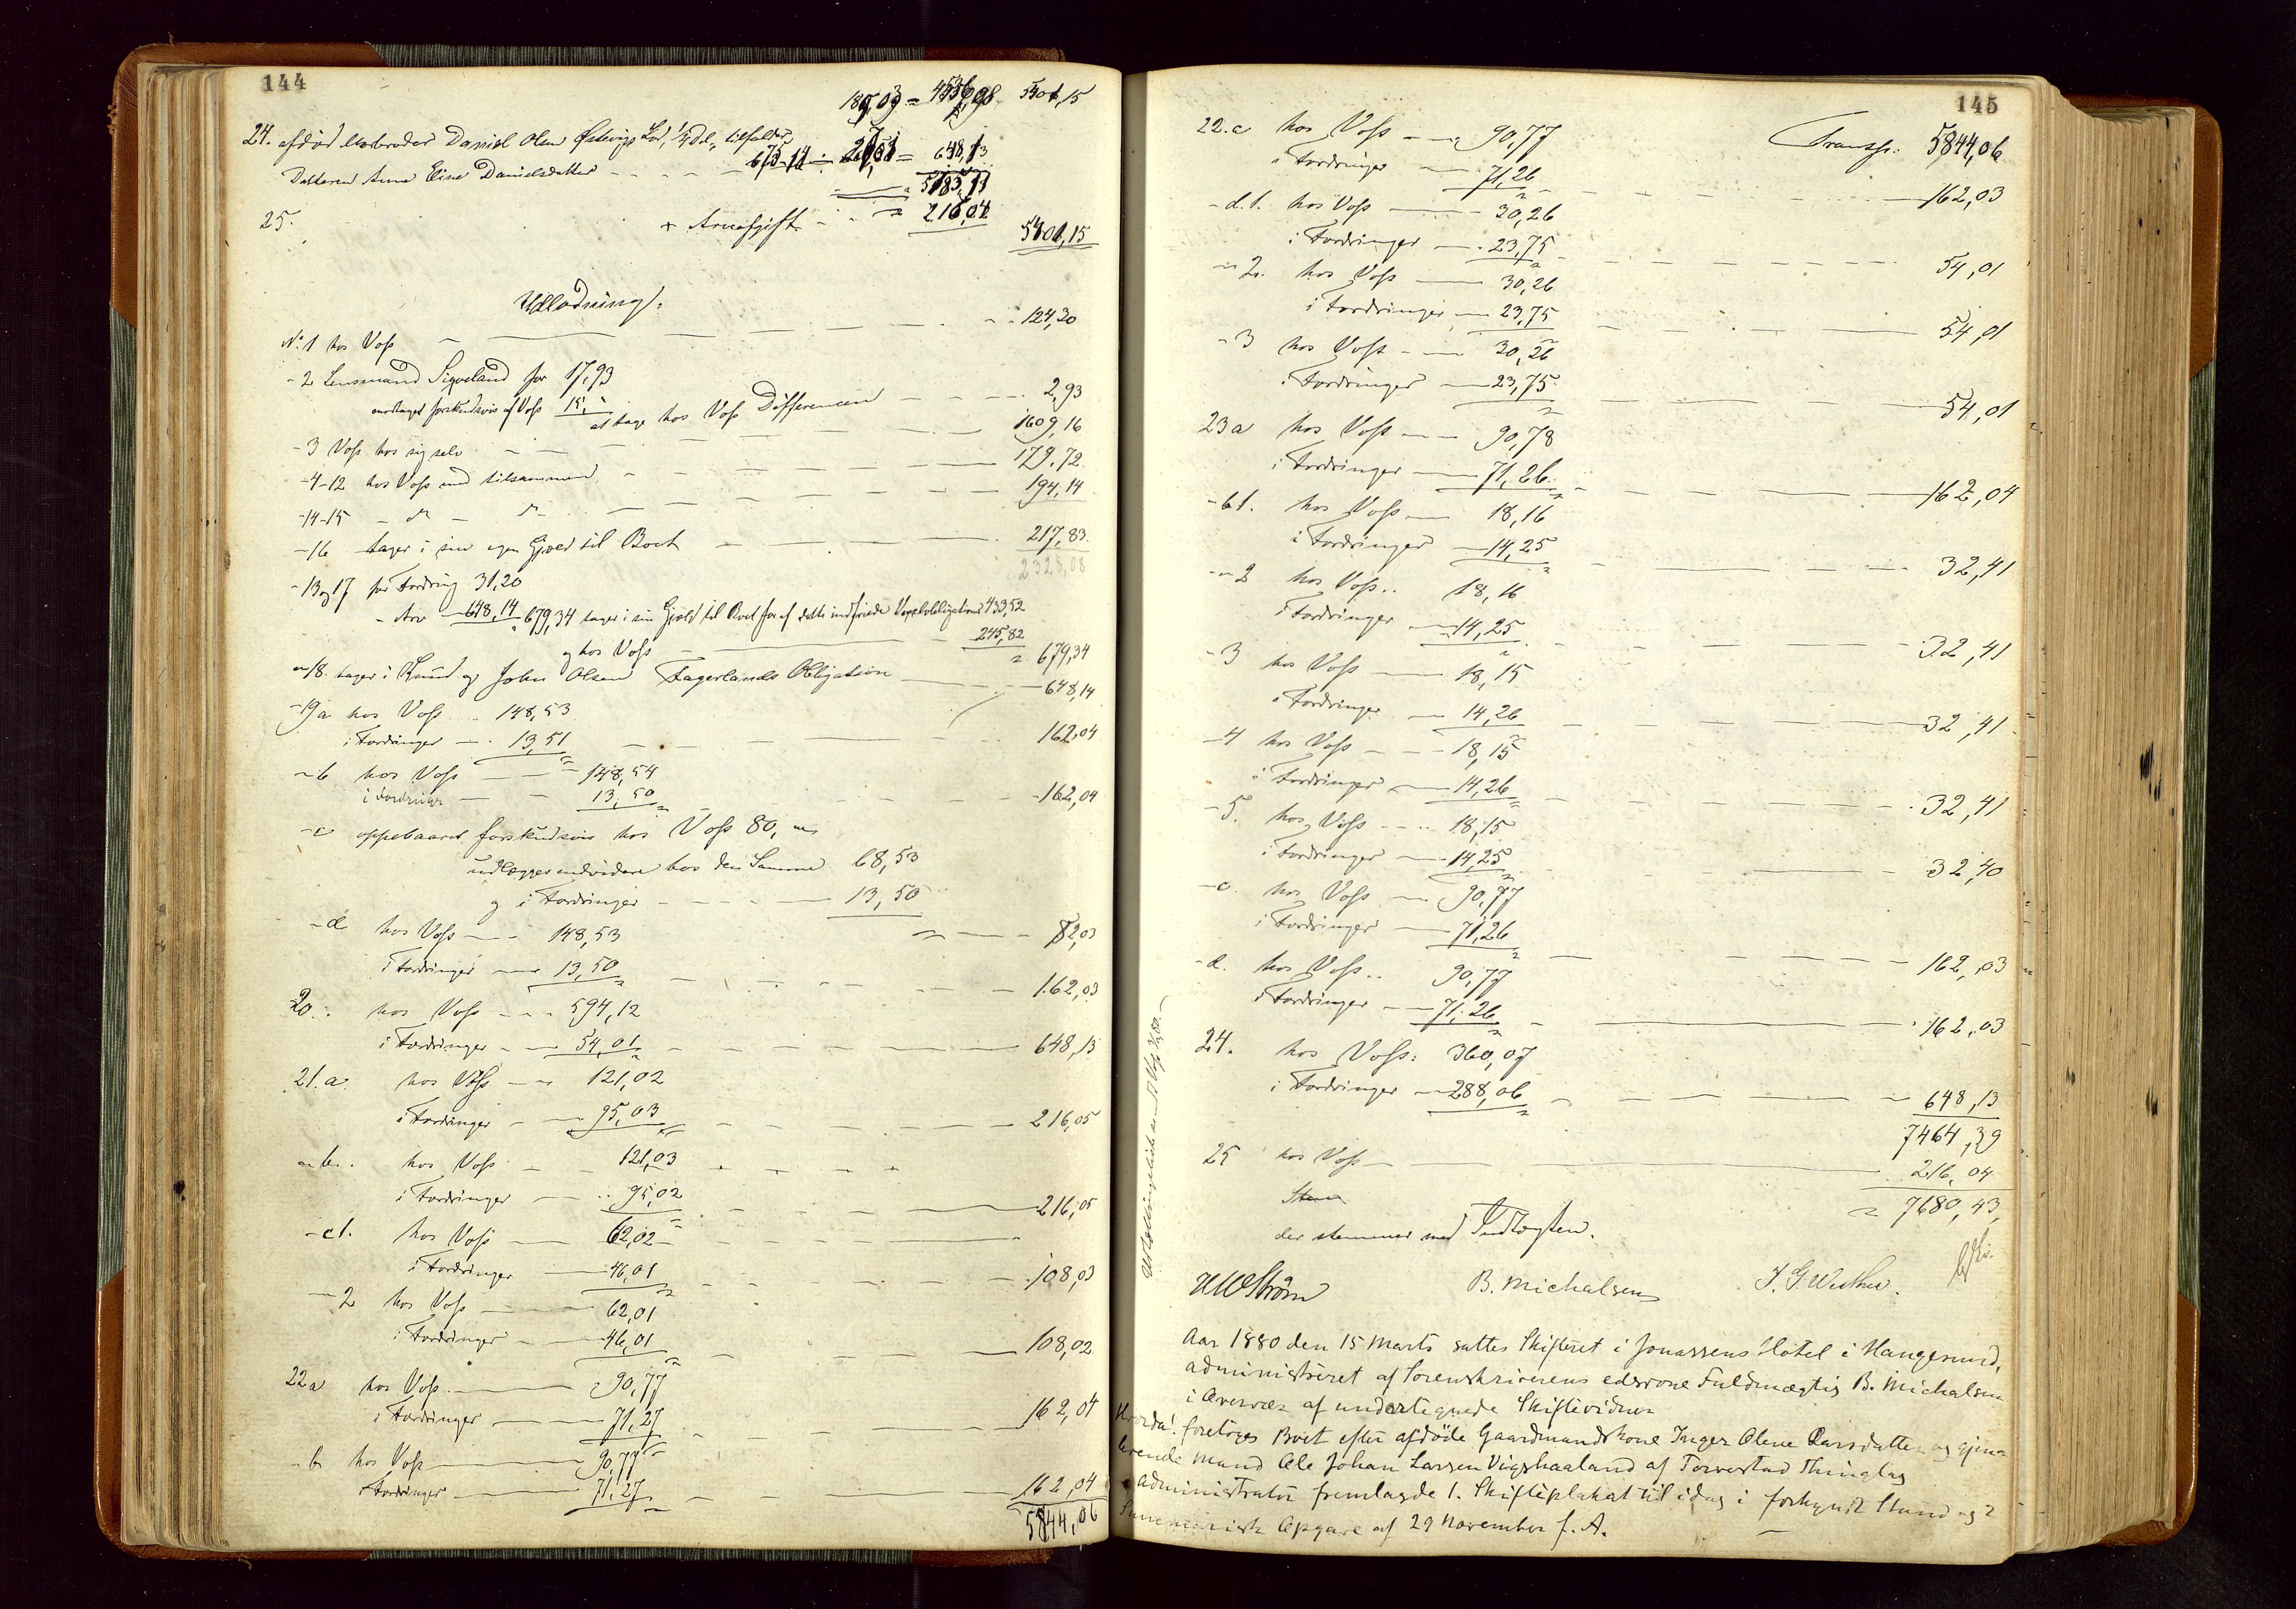 144
5401,15
24. afdød Morbroder Daniel Olsen Østevigs Lod, 1/4 Del, tilfalder
Datteren Anne Eline Danielsdatter 648,13
5185,11
25. + Arveafgift 216,04
5401,15
Udlodning:
No 1 hos Voss 124,30
- 2 Lensmand Sigveland for 17,93
modtaget forskudsvis af Voss 15,"
at tage hos Voss Differencen 2,93
- 3 Voss hos sig selv 1609,16
- 4-12 hos Voss med tilsammen 179,72
- 14-15 - do - do 194,14
- 16 tager i sin egen Gjæld til Boet 217,83
2328,08
- 13 og 17 for Fordring 31,20
- Arv 648,14 = 679,34 tager i sin Gjæld til Boet for af dette indfriede Vexelobligationer 433,52
og hos Voss 245,82 = 679,34
- 18. tager i Knud og John Olsen Fagerlands Obligation 648,14
- 19a hos Voss 148,53
i Fordringer 13,51 162,04
- b hos Voss 148,54
i Fordringer 13,50 162,04
- c oppebaaret forskudsvis hos Voss 80,
udlægges endvidere hos den Samme 68,53
og i Fordringer 13,50
= 82,03
- d hos Voss 148,53
i Fordringer 13,50 162,03
20. hos Voss 594,12
i Fordringer 54,01 648,13
21.a hos Voss 121,02
i Fordringer 95,03 216,05
- b. hos Voss 121,03
i Fordringer 95,02 216,05
- c1. hos Voss 62,02
i Fordringer 46,01 108,03
- 2 hos Voss 62,01
i Fordringer 46,01 108,02
22a hos Voss 90,77
i Fordringer 71,27 162,04
- b hos Voss 90,77
i Fordringer 71,27 162,04
5844,06
145
Transp: 5844,06
22.c hos Voss 90,77
i Fordringer 71,26 162,03
- d.1. hos Voss 30,26
i Fordringer 23,75 54,01
- 2. hos Voss 30,26
i Fordringer 23,75 54,01
- 3 hos Voss 30,26
i Fordringer 23,75 54,01
23a hos Voss 90,78
i Fordringer 71,26 162,04
- b1. hos Voss 18,16
i Fordringer 14,25 32,41
- 2 hos Voss 18,16
i Fordringer 14,25 32,41
- 3 hos Voss 18,15
i Fordringer 14,26 32,41
- 4 hos Voss 18,15
i Fordringer 14,26 32,41
- 5. hos Voss 18,15
i Fordringer 14,25 32,40
- c. hos Voss 90,77
i Fordringer 71,26 162,03
- d. hos Voss 90,77
i Fordringer 71,26 162,03
24. hos Voss: 360,07
i Fordringer 288,06 648,13
7464,39
25 hos Voss 216,04
= 7680,43
der stemmer med Indtægten.
B. Michalsen
Aar 1880 den 15 Marts sattes Skifteret i Jonassens Hotel i Haugesund,
administreret af Sorenskriverens edsvorne Fuldmægtig B. Michalsen
i Overvær af undertegnede Skiftevidner
Hvorda! foretoges Boet efter afdøde Gaardmandskone Inger Olene Larsdatter og gjen-
levende Mand Ole Johan Larsen Vigshaaland af Torvestad Thinglag
Administrator fremlagde 1. Skifteplakat til idag i forkyndt Stand og 2
Summarisk Opgave af 29 November f. A.